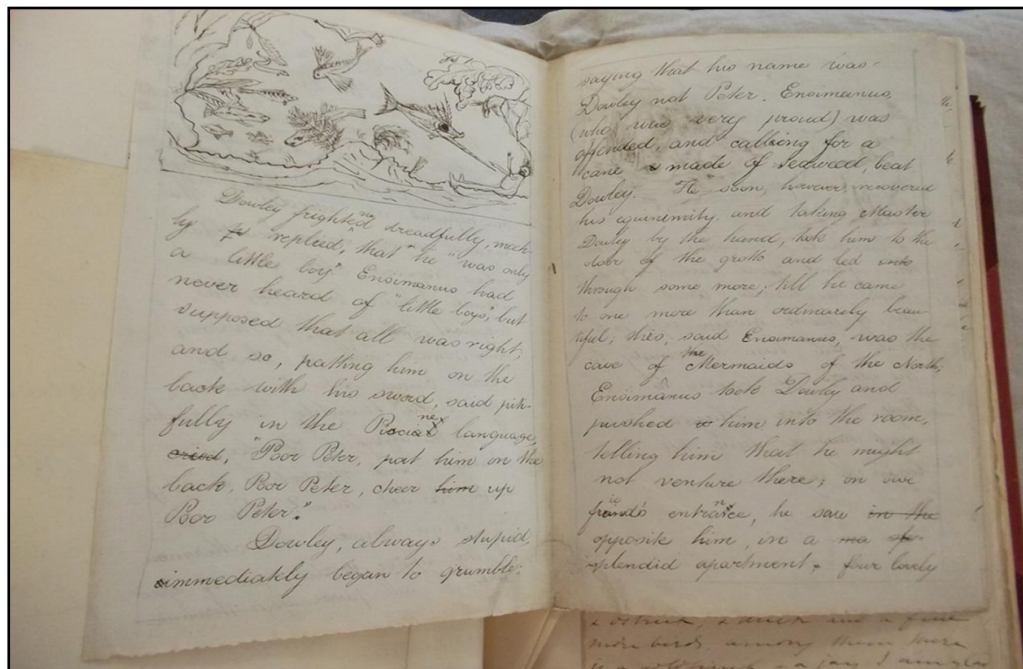 Dowley frightened dreadfully, meek-
ly replied, "that" he "was only
a little boy" Ensimanus had
never heard of "little boys", but
supposed that all was right,
and so, patting him on the
back with his sword, said piti-
fully in the Piscine language,
"Poor Peter, pat him on the
back, Poor Peter, cheer him up
Poor Peter."
Dowley, always stupid,
immediately began to grumble;
saying that his name was
Dowley not Peter. Ensimanus,
(who was very proud) was
offended, and calling for a
cane made of seaweed, beat
Dowley. "He" soon, however, recovered
his equinimity, and taking Master
Dowley by the hand, took him to the
door of the grotto and led
through some more; till he came
to one more than ordinarily beau-
tiful; this, said Ensimanus, was the
cave of the Mermaids of the North;
Ensimanus took Dowley and
pushed him into the room,
telling him that he might
not venture there; on our
friend's entrance, he saw in the
opposite him, in a
splendid apartment, four lovely
& ostrich, a duck and a few
more birds among them there
is a gold finch